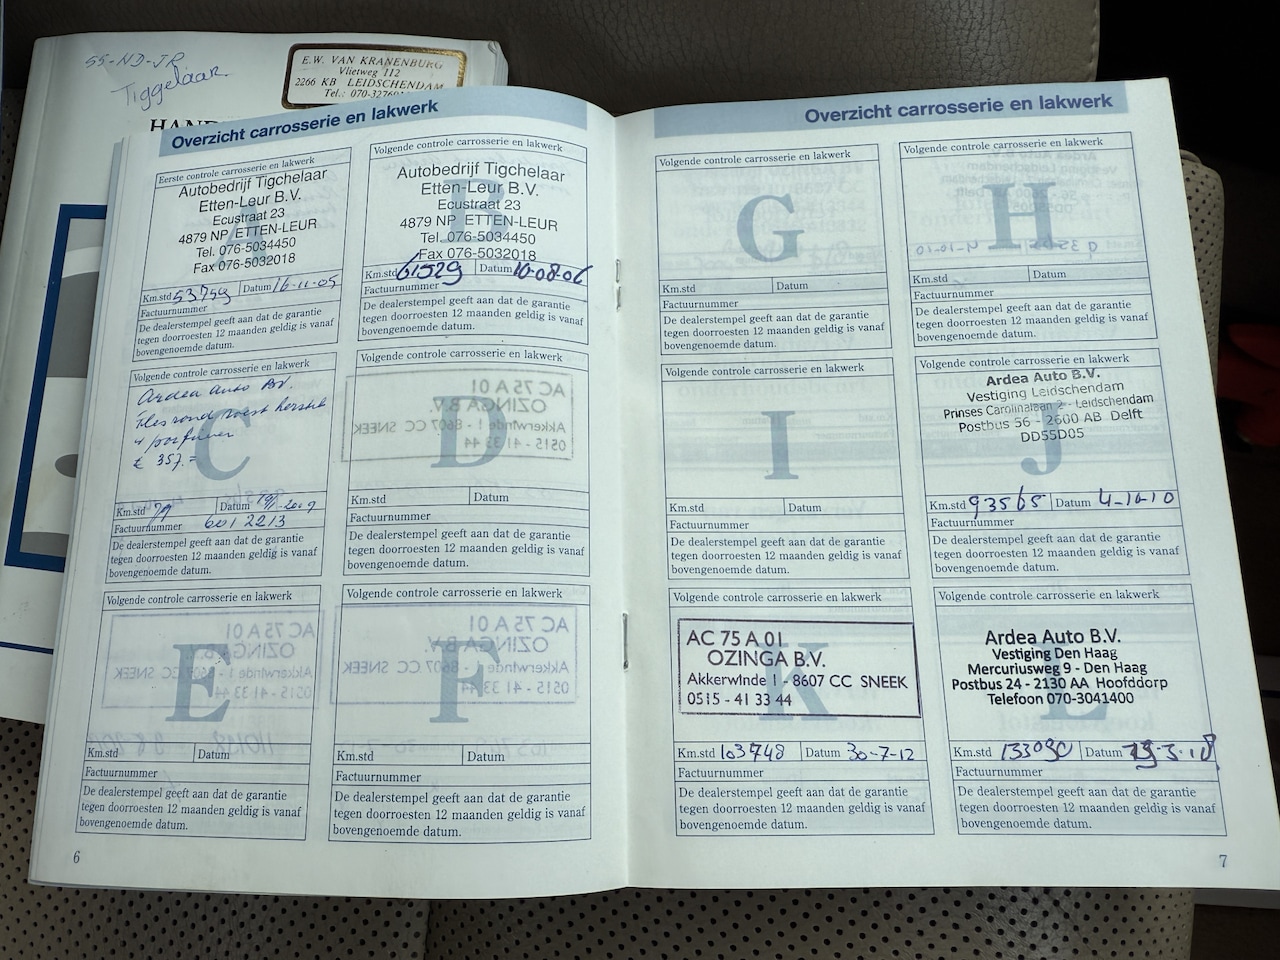 55-ND-JR
Tiggelaar
E.W. VAN KRANENBURG
Vlietweg 112
2266 KB LEIDSCHENDAM
Tel.: 070-3276
HAND
Overzicht carrosserie en lakwerk
Eerste controle carrosserie en lakwerk
Autobedrijf Tigchelaar
Etten-Leur B.V.
Ecustraat 23
4879 NP ETTEN-LEUR
Tel. 076-5034450
Fax 076-5032018
A
Km.std 53759 Datum 16-11-05
Factuurnummer
De dealerstempel geeft aan dat de garantie
tegen doorroesten 12 maanden geldig is vanaf
bovengenoemde datum.
Volgende controle carrosserie en lakwerk
Autobedrijf Tigchelaar
Etten-Leur B.V.
Ecustraat 23
4879 NP ETTEN-LEUR
Tel. 076-5034450
Fax 076-5032018
B
Km.std 61529 Datum 10-08-06
Factuurnummer
De dealerstempel geeft aan dat de garantie
tegen doorroesten 12 maanden geldig is vanaf
bovengenoemde datum.
Volgende controle carrosserie en lakwerk
Ardea Auto BV.
roest herstel
€ 357.=
C
Km.std 79 Datum
Factuurnummer 6012213
De dealerstempel geeft aan dat de garantie
tegen doorroesten 12 maanden geldig is vanaf
bovengenoemde datum.
Volgende controle carrosserie en lakwerk
D
Km.std Datum
Factuurnummer
De dealerstempel geeft aan dat de garantie
tegen doorroesten 12 maanden geldig is vanaf
bovengenoemde datum.
Volgende controle carrosserie en lakwerk
E
Km.std Datum
Factuurnummer
De dealerstempel geeft aan dat de garantie
tegen doorroesten 12 maanden geldig is vanaf
bovengenoemde datum.
Volgende controle carrosserie en lakwerk
F
Km.std Datum
Factuurnummer
De dealerstempel geeft aan dat de garantie
tegen doorroesten 12 maanden geldig is vanaf
bovengenoemde datum.
6
Overzicht carrosserie en lakwerk
Volgende controle carrosserie en lakwerk
G
Km.std Datum
Factuurnummer
De dealerstempel geeft aan dat de garantie
tegen doorroesten 12 maanden geldig is vanaf
bovengenoemde datum.
Volgende controle carrosserie en lakwerk
H
Km.std Datum
Factuurnummer
De dealerstempel geeft aan dat de garantie
tegen doorroesten 12 maanden geldig is vanaf
bovengenoemde datum.
Volgende controle carrosserie en lakwerk
I
Km.std Datum
Factuurnummer
De dealerstempel geeft aan dat de garantie
tegen doorroesten 12 maanden geldig is vanaf
bovengenoemde datum.
Volgende controle carrosserie en lakwerk
Ardea Auto B.V.
Vestiging Leidschendam
Prinses Carolinalaan 2 - Leidschendam
Postbus 56 - 2600 AB Delft
DD55D05
J
Km.std 93565 Datum 4-10-10
Factuurnummer
De dealerstempel geeft aan dat de garantie
tegen doorroesten 12 maanden geldig is vanaf
bovengenoemde datum.
Volgende controle carrosserie en lakwerk
AC 75 A 01
OZINGA B.V.
Akkerwinde 1 - 8607 CC SNEEK
0515 - 41 33 44
K
Km.std 103748 Datum 30-7-12
Factuurnummer
De dealerstempel geeft aan dat de garantie
tegen doorroesten 12 maanden geldig is vanaf
bovengenoemde datum.
Volgende controle carrosserie en lakwerk
Ardea Auto B.V.
Vestiging Den Haag
Mercuriusweg 9 - Den Haag
Postbus 24 - 2130 AA Hoofddorp
Telefoon 070-3041400
L
Km.std 133090 Datum
Factuurnummer
De dealerstempel geeft aan dat de garantie
tegen doorroesten 12 maanden geldig is vanaf
bovengenoemde datum.
7